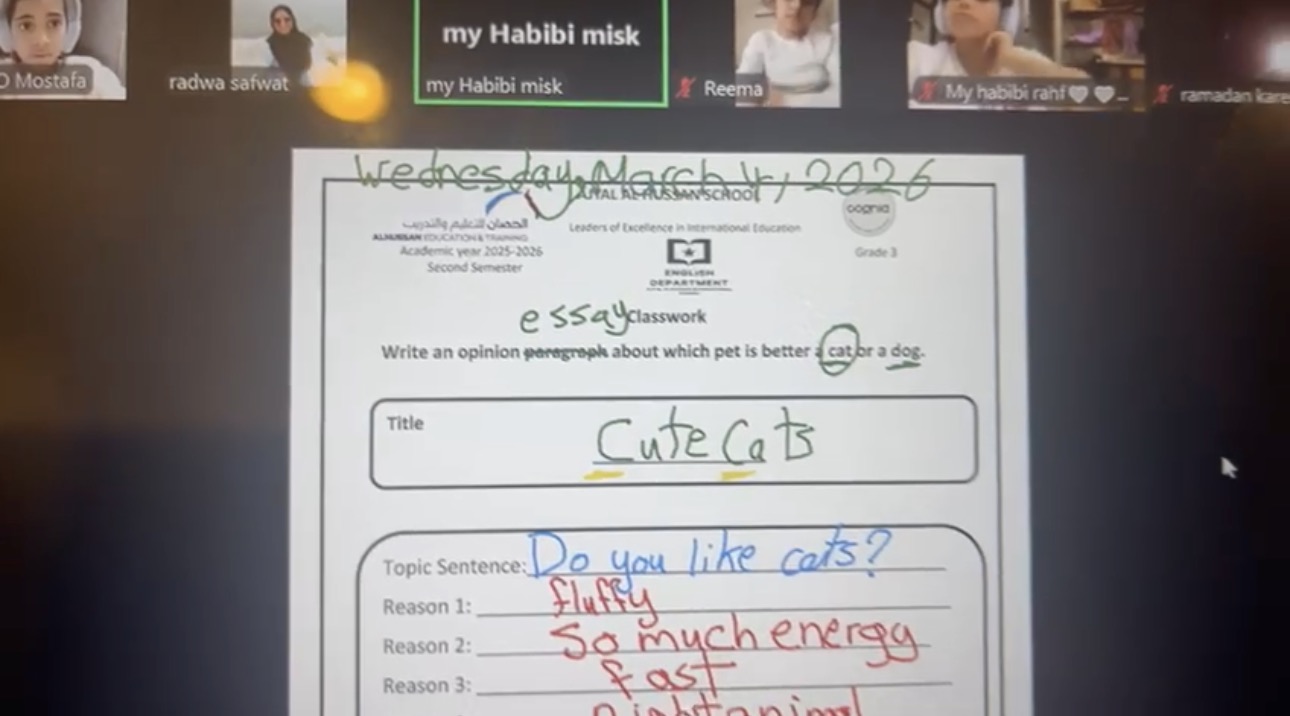 Mostafa
radwa safwat
my Habibi misk
my Habibi misk
Reema
My habibi rahf🤍🤍...
ramadan kare
Wednesday, March 4, 2026
AL-HUSSAN SCHOOL
الحصان للتعليم والتدريب
ALHUSSAN EDUCATION & TRAINING
Academic year 2025-2026
Second Semester
Leaders of Excellence in International Education
ENGLISH
DEPARTMENT
cognia
Grade 3
essay Classwork
Write an opinion paragraph about which pet is better a cat or a dog.
Title
Cute Cats
Topic Sentence: Do you like cats?
Reason 1: fluffy
Reason 2: so much energy
Reason 3: fast
night animal